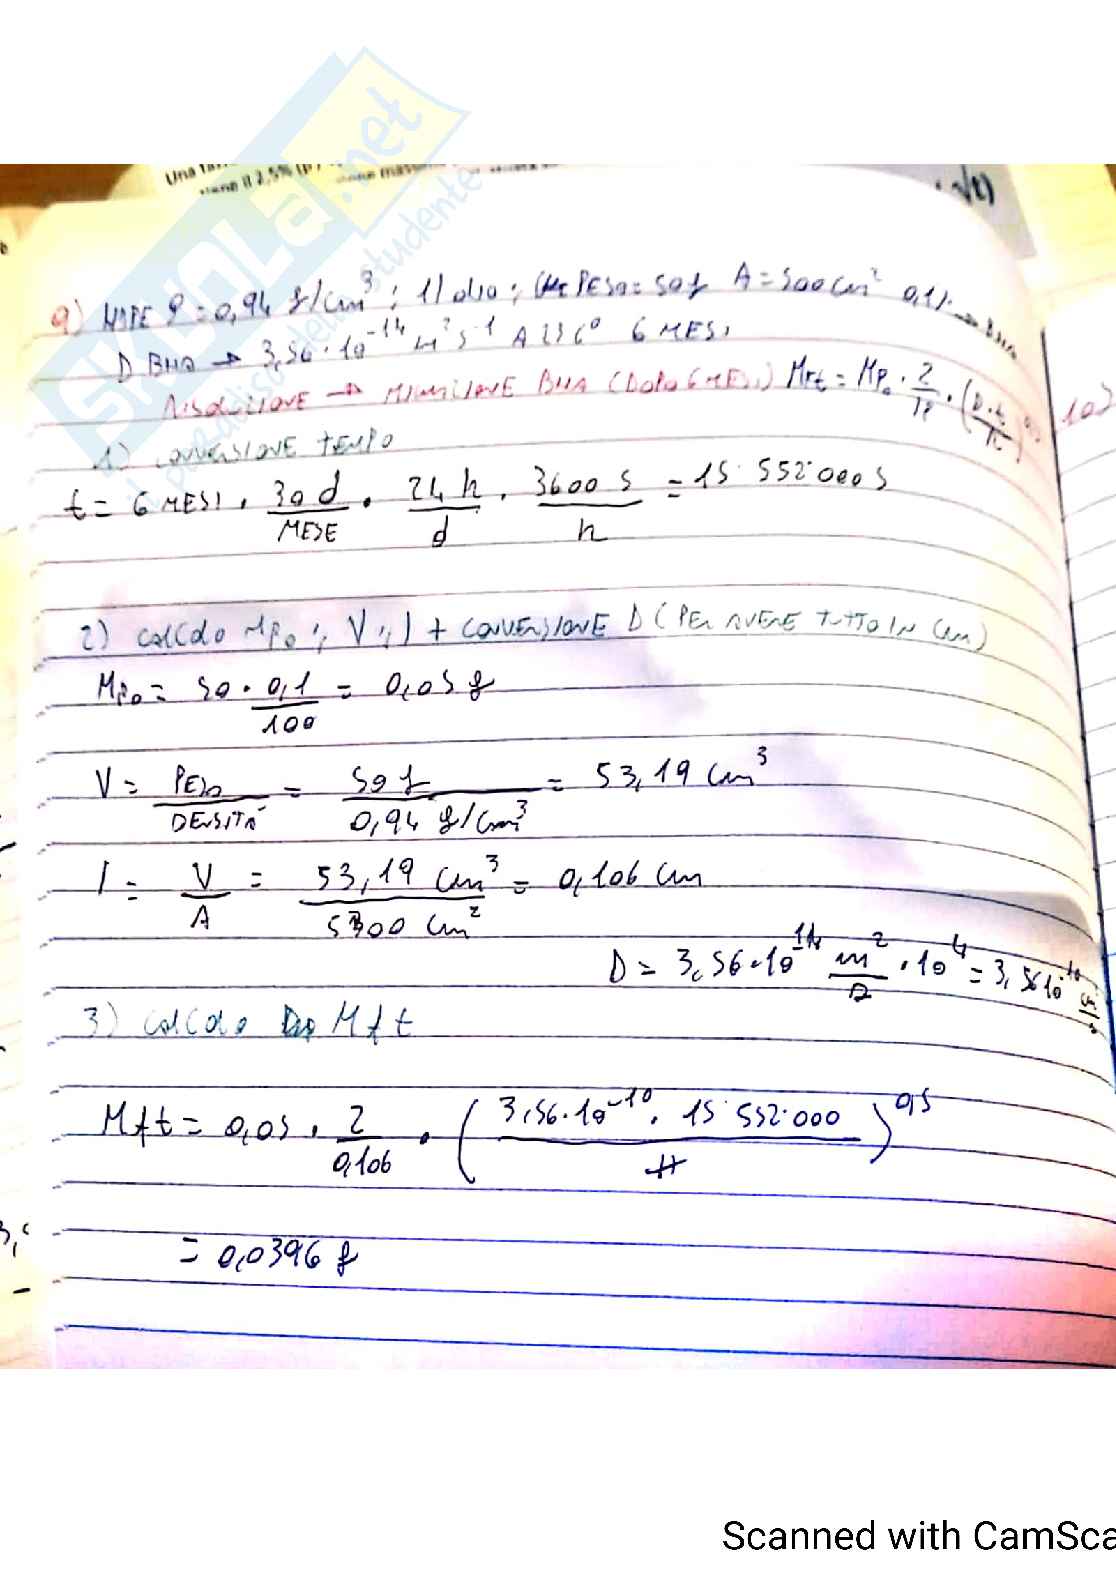 Una
tiene il 2,5% (p
SKUOLA.net
il paradiso dello studente
9) HDPE ρ = 0,94 g/cm³ ; 1 l olio ; PESO = 50 g A = 500 cm² 0,1% → BHA
D BHA → 3,56 · 10⁻¹⁴ m² s⁻¹ A 23 C° 6 MESI
RISOLUZIONE → MIGRAZIONE BHA (DOPO 6 MESI) Mft = Mp₀ · 2/lp · (D·t/π)
10)
1) CONVERSIONE TEMPO
t = 6 MESI · 30 d/MESE · 24 h/d · 3600 s/h = 15˙552˙000 s
2) CALCOLO Mp₀ ; V ; l + CONVERSIONE D (PER AVERE TUTTO IN cm)
Mp₀ = 50 · 0,1/100 = 0,05 g
V = PESO/DENSITÀ = 50 g/0,94 g/cm³ = 53,19 cm³
l = V/A = 53,19 cm³/500 cm² = 0,106 cm
D = 3,56·10⁻¹⁴ m²/s · 10⁴ = 3,56 10⁻¹⁰
3) CALCOLO Mft
Mft = 0,05 · 2/0,106 · (3,56·10⁻¹⁰ · 15˙552˙000/π)^0,5
= 0,0396 g
Scanned with CamSca